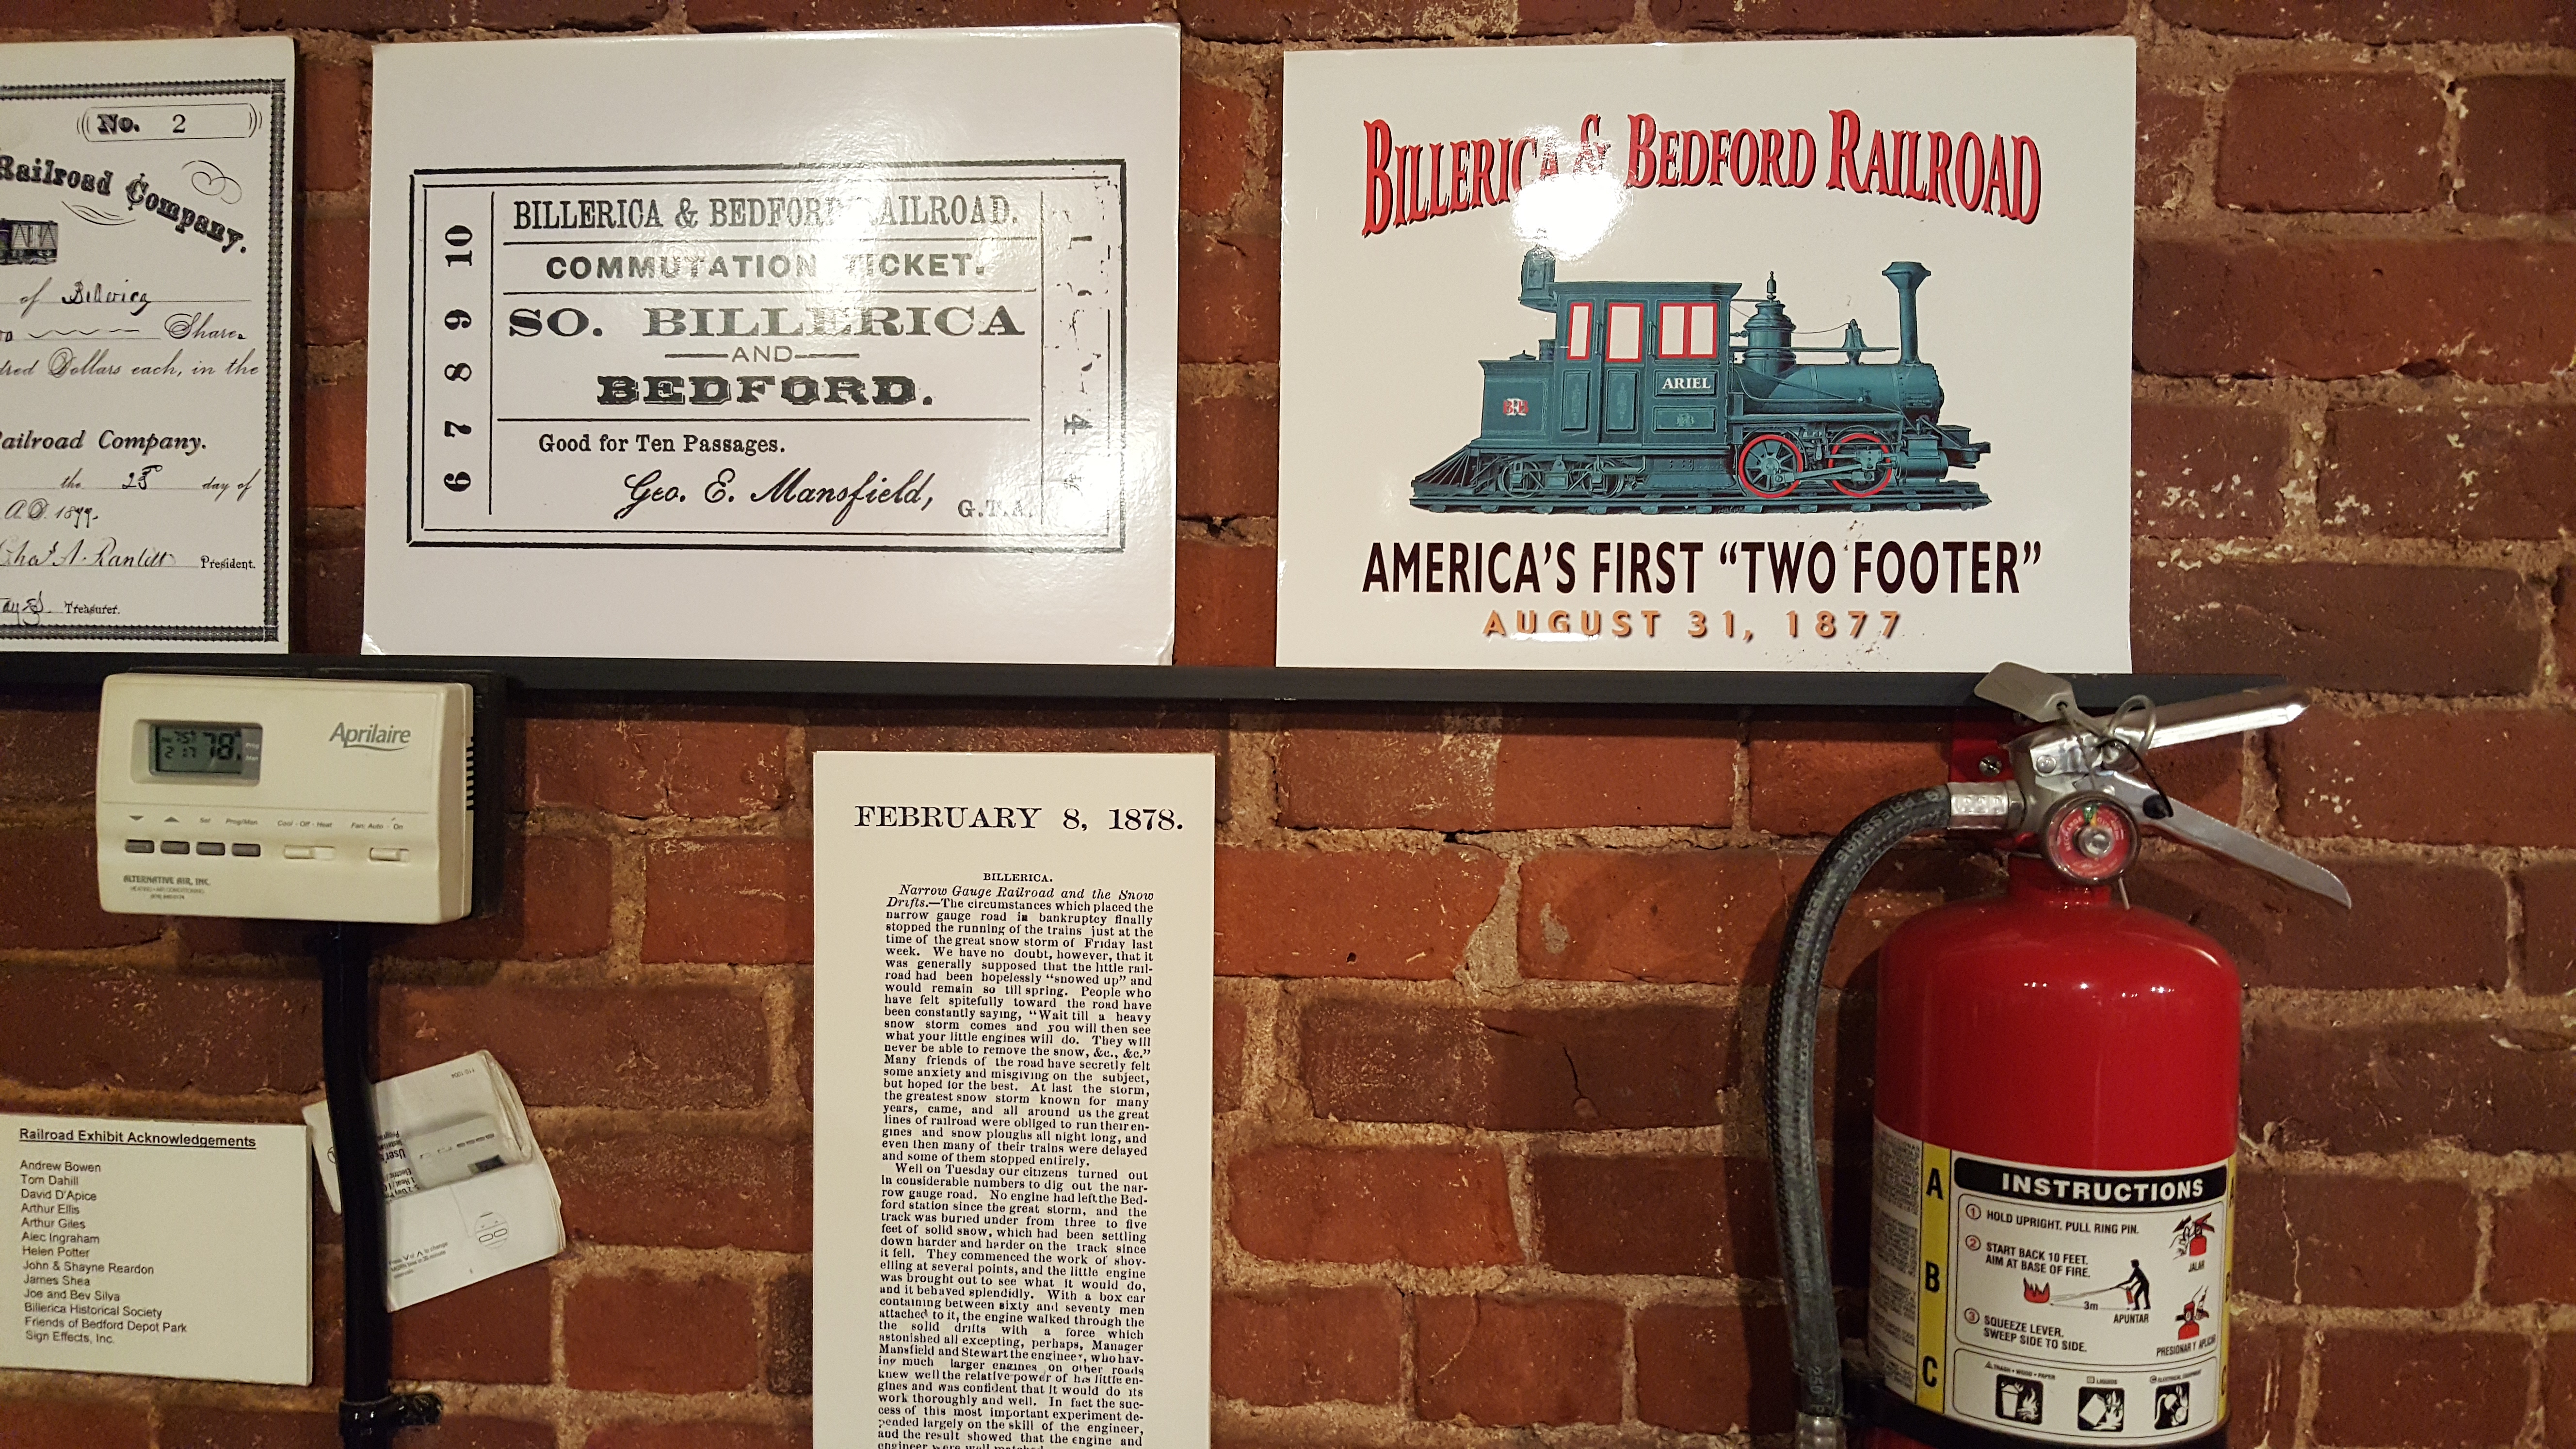 No. 2
Railroad Company.
of Billerica
Share
dred Dollars each, in the
Railroad Company.
the 28 day of
A.D. 1877.
President.
Treasurer.
BILLERICA & BEDFORD RAILROAD.
COMMUTATION TICKET.
SO. BILLERICA
AND
BEDFORD.
Good for Ten Passages.
Geo. E. Mansfield, G.T.A.
10
9
8
7
6
1
4
BILLERICA & BEDFORD RAILROAD
ARIEL
AMERICA'S FIRST "TWO FOOTER"
AUGUST 31, 1877
Aprilaire
75° 78°
2:17
Set Prog/Man Cool - Off - Heat Fan: Auto - On
ALTERNATIVE AIR, INC.
HEATING • AIR CONDITIONING
FEBRUARY 8, 1878.
BILLERICA.
Narrow Gauge Railroad and the Snow
Drifts.—The circumstances which placed the
narrow gauge road in bankruptcy finally
stopped the running of the trains just at the
time of the great snow storm of Friday last
week. We have no doubt, however, that it
was generally supposed that the little rail-
road had been hopelessly "snowed up" and
would remain so till spring. People who
have felt spitefully toward the road have
been constantly saying, "Wait till a heavy
snow storm comes and you will then see
what your little engines will do. They will
never be able to remove the snow, &c., &c."
Many friends of the road have secretly felt
some anxiety and misgiving on the subject,
but hoped for the best. At last the storm,
the greatest snow storm known for many
years, came, and all around us the great
lines of railroad were obliged to run their en-
gines and snow ploughs all night long, and
even then many of their trains were delayed
and some of them stopped entirely.
Well on Tuesday our citizens turned out
in considerable numbers to dig out the nar-
row gauge road. No engine had left the Bed-
ford station since the great storm, and the
track was buried under from three to five
feet of solid snow, which had been settling
down harder and harder on the track since
it fell. They commenced the work of shov-
elling at several points, and the little engine
was brought out to see what it would do,
and it behaved splendidly. With a box car
containing between sixty and seventy men
attached to it, the engine walked through the
the solid drifts with a force which
astonished all excepting, perhaps, Manager
Mansfield and Stewart the engineer, who hav-
ing much larger engines on other roads
knew well the relative power of his little en-
gines and was confident that it would do its
work thoroughly and well. In fact the suc-
cess of this most important experiment de-
pended largely on the skill of the engineer,
and the result showed that the engine and
engineer were well matched
Railroad Exhibit Acknowledgements
Andrew Bowen
Tom Dahill
David D'Apice
Arthur Ellis
Arthur Giles
Alec Ingraham
Helen Potter
John & Shayne Reardon
James Shea
Joe and Bev Silva
Billerica Historical Society
Friends of Bedford Depot Park
Sign Effects, Inc.
A
B
C
INSTRUCTIONS
1 HOLD UPRIGHT. PULL RING PIN.
JALAR
2 START BACK 10 FEET.
AIM AT BASE OF FIRE.
3m
APUNTAR
3 SQUEEZE LEVER.
SWEEP SIDE TO SIDE.
A TRASH • WOOD • PAPER
B LIQUIDS
C ELECTRICAL EQUIPMENT